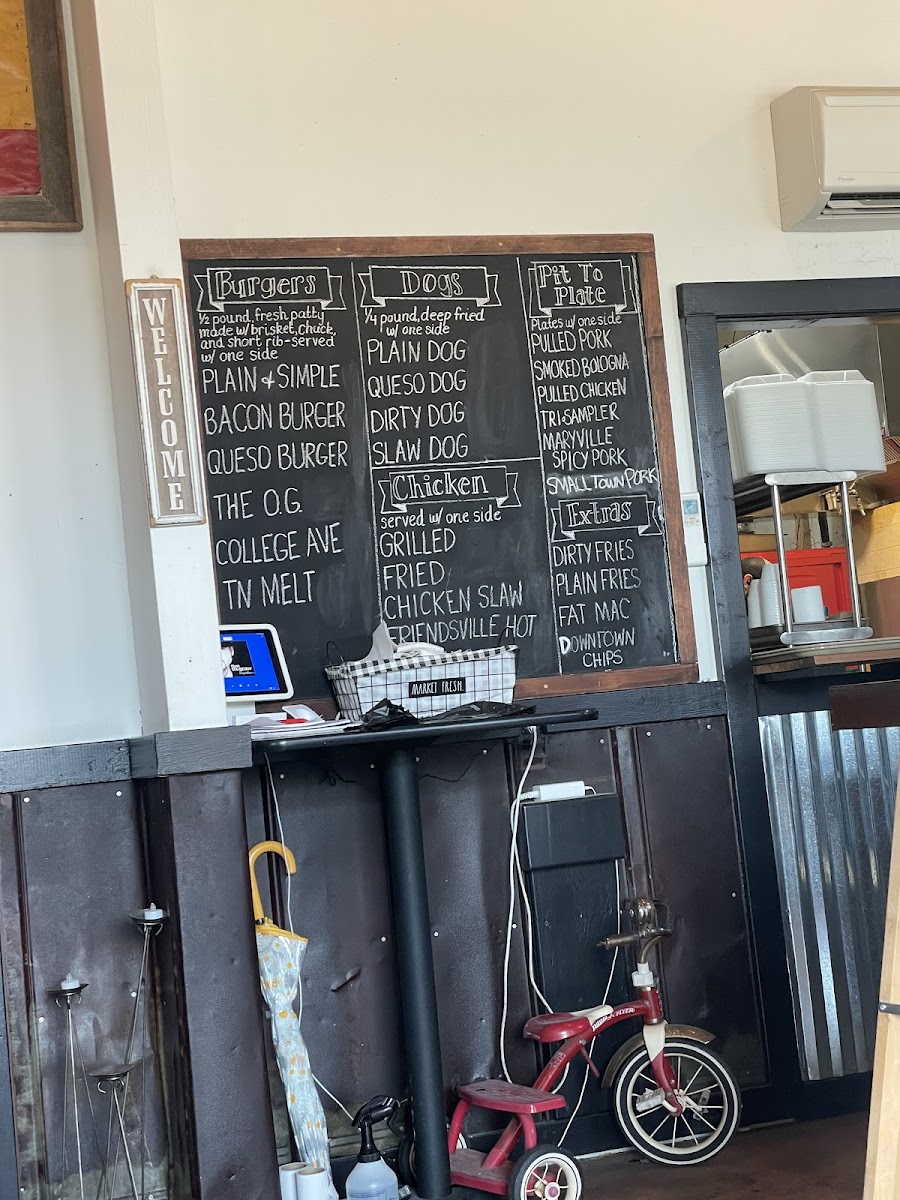 WELCOME
Burgers
1/2 pound, fresh patty
made w/ brisket, chuck,
and short rib-served
w/ one side
PLAIN & SIMPLE
BACON BURGER
QUESO BURGER
THE O.G.
COLLEGE AVE
TN MELT
Dogs
1/4 pound, deep fried
w/ one side
PLAIN DOG
QUESO DOG
DIRTY DOG
SLAW DOG
Chicken
served w/ one side
GRILLED
FRIED
CHICKEN SLAW
FRIENDSVILLE HOT
Pit To
Plate
Plates w/ one side
PULLED PORK
SMOKED BOLOGNA
PULLED CHICKEN
TRI-SAMPLER
MARYVILLE
SPICY PORK
SMALL TOWN PORK
Extras
DIRTY FRIES
PLAIN FRIES
FAT MAC
DOWNTOWN
CHIPS
MARKET FRESH.
RADIO FLYER